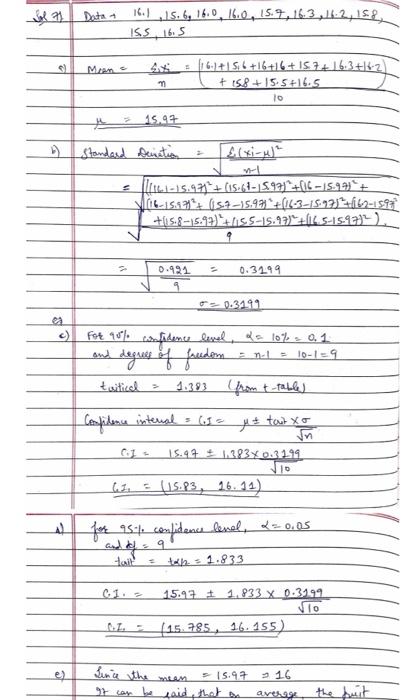 Sol 7) Data → 16.1, 15.6, 16.0, 16.0, 15.7, 16.3, 16.2, 15.8,
15.5, 16.5
a) Mean = Σxi/n = (16.1+15.6+16+16+15.7+16.3+16.2
+ 15.8+15.5+16.5)/10
μ = 15.97
b) Standard Deviation = √(Σ(xi-μ)²/(n-1))
= √(((16.1-15.97)²+(15.6-15.97)²+(16-15.97)²+
(16-15.97)²+(15.7-15.97)²+(16.3-15.97)²+(16.2-15.97)²
+(15.8-15.97)²+(15.5-15.97)²+(16.5-15.97)²)/9)
= √(0.921/9) = 0.3199
σ = 0.3199
c) For 90% confidence level, α = 10% = 0.1
and degrees of freedom = n-1 = 10-1 = 9
tcritical = 1.383 (from t-table)
Confidence interval = C.I = μ ± tcrit × σ/√n
C.I = 15.97 ± 1.383 × 0.3199/√10
C.I. = (15.83, 16.11)
d) for 95% confidence level, α = 0.05
and df = 9
tcrit = tα/2 = 1.833
C.I. = 15.97 ± 1.833 × 0.3199/√10
C.I. = (15.785, 16.155)
e) Since the mean = 15.97 ≈ 16
It can be said, that on average, the fruit